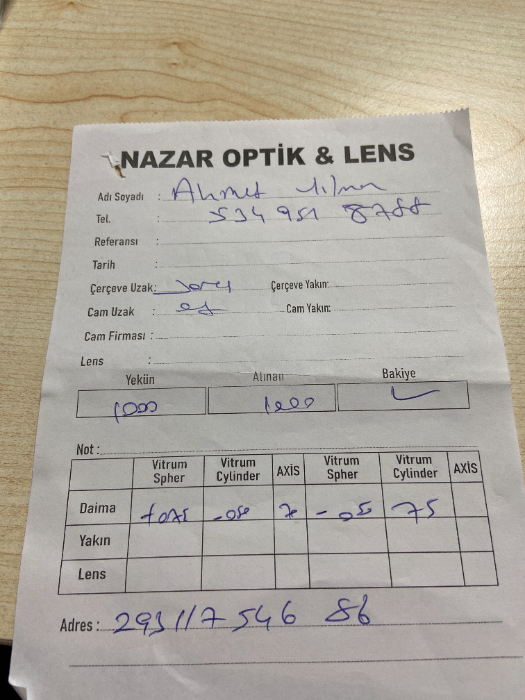 NAZAR OPTİK & LENS
Adı Soyadı : Ahmet Yılmaz
Tel. : 534 951 8788
Referansı :
Tarih :
Çerçeve Uzak: Çerçeve Yakın:
Cam Uzak : Cam Yakın:
Cam Firması :
Lens :
Yekün Alınan Bakiye
1000 1000
Not :
Vitrum Spher Vitrum Cylinder AXİS Vitrum Spher Vitrum Cylinder AXİS
Daima +075 -050 -05 75
Yakın
Lens
Adres : 293117 546 86